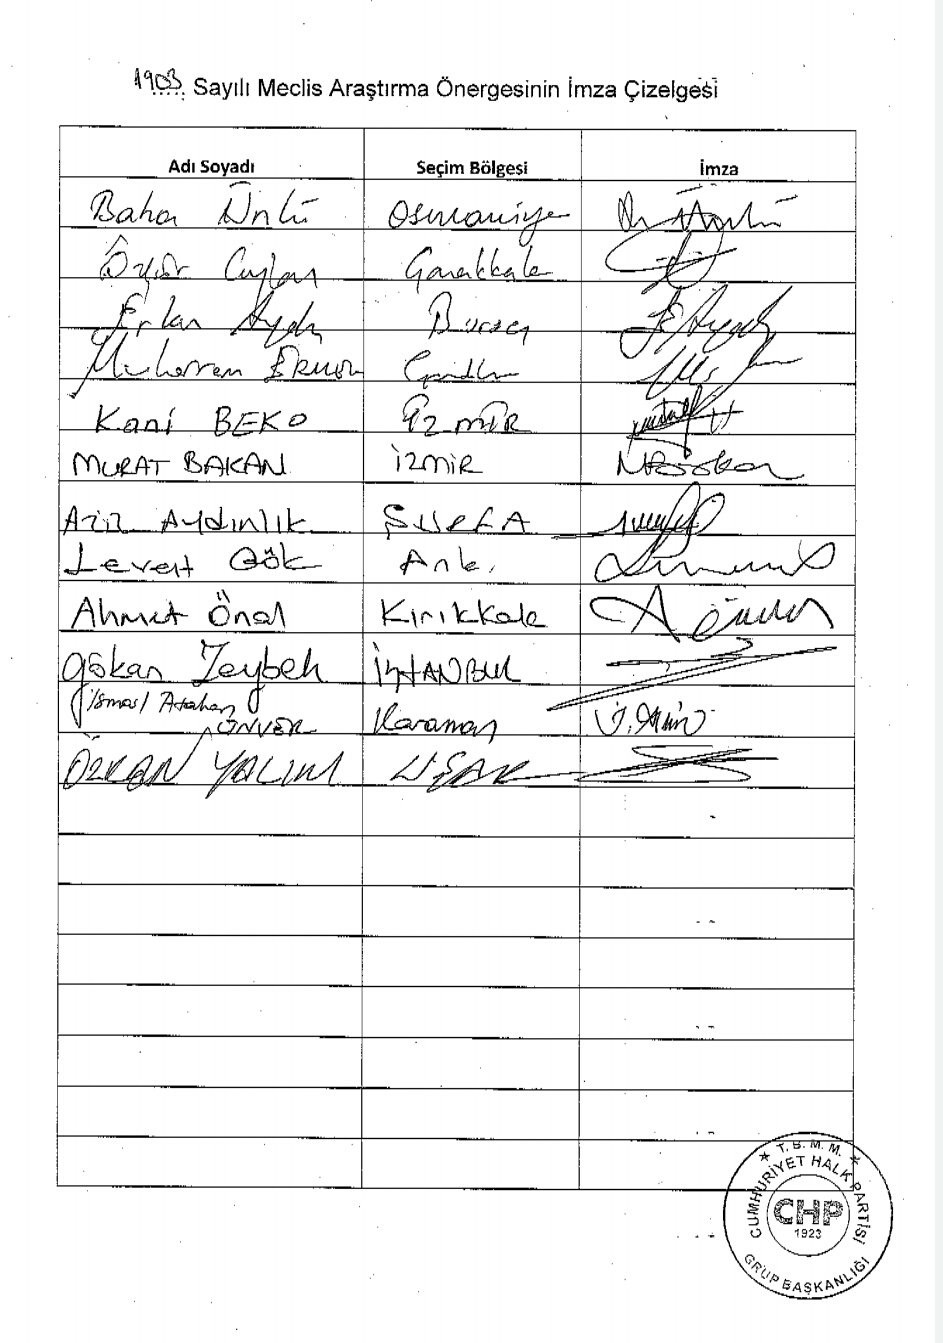 1903 Sayılı Meclis Araştırma Önergesinin İmza Çizelgesi
Adı Soyadı Seçim Bölgesi İmza
Baha Ünlü Osmaniye
Özgür Ceylan Çanakkale
Erkan Aydın Bursa
Muharrem Erkek Çanakkale
Kani BEKO İZMİR
MURAT BAKAN İZMİR
Aziz Aydınlık Ş.URFA
Levent Gök Ank.
Ahmet Önal Kırıkkale
Gökan Zeybek İSTANBUL
İsmail Atakan
ÜNVER Karaman
ÖZKAN YALIM UŞAK
T.B.M.M.
CUMHURİYET HALK PARTİSİ
CHP
1923
GRUP BAŞKANLIĞI